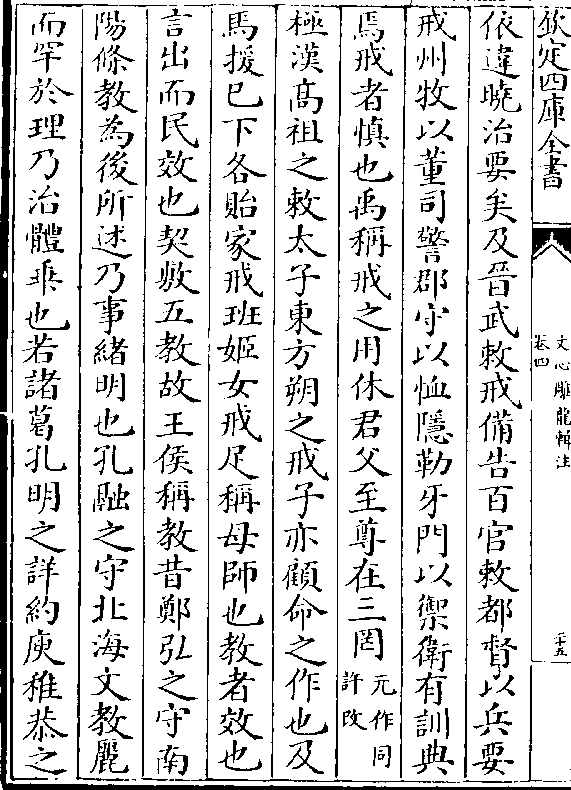 欽定四庫全書
文心雕龍輯注
卷四
二十五
依違曉治要矣及晉武敕戒備告百官敕都督以兵要
戒州牧以董司警郡守以恤隱勒牙門以禦衛有訓典
焉戒者慎也禹稱戒之用休君父至尊在三罔元作同許改
極漢髙祖之敕太子東方朔之戒子亦顧命之作也及
馬援已下各貽家戒班姬女戒足稱母師也教者效也
言出而民效也契敷五教故王侯稱教昔鄭弘之守南
陽條教為後所述乃事緒明也孔融之守北海文教麗
而罕於理乃治體乖也若諸葛孔明之詳約庾稚恭之